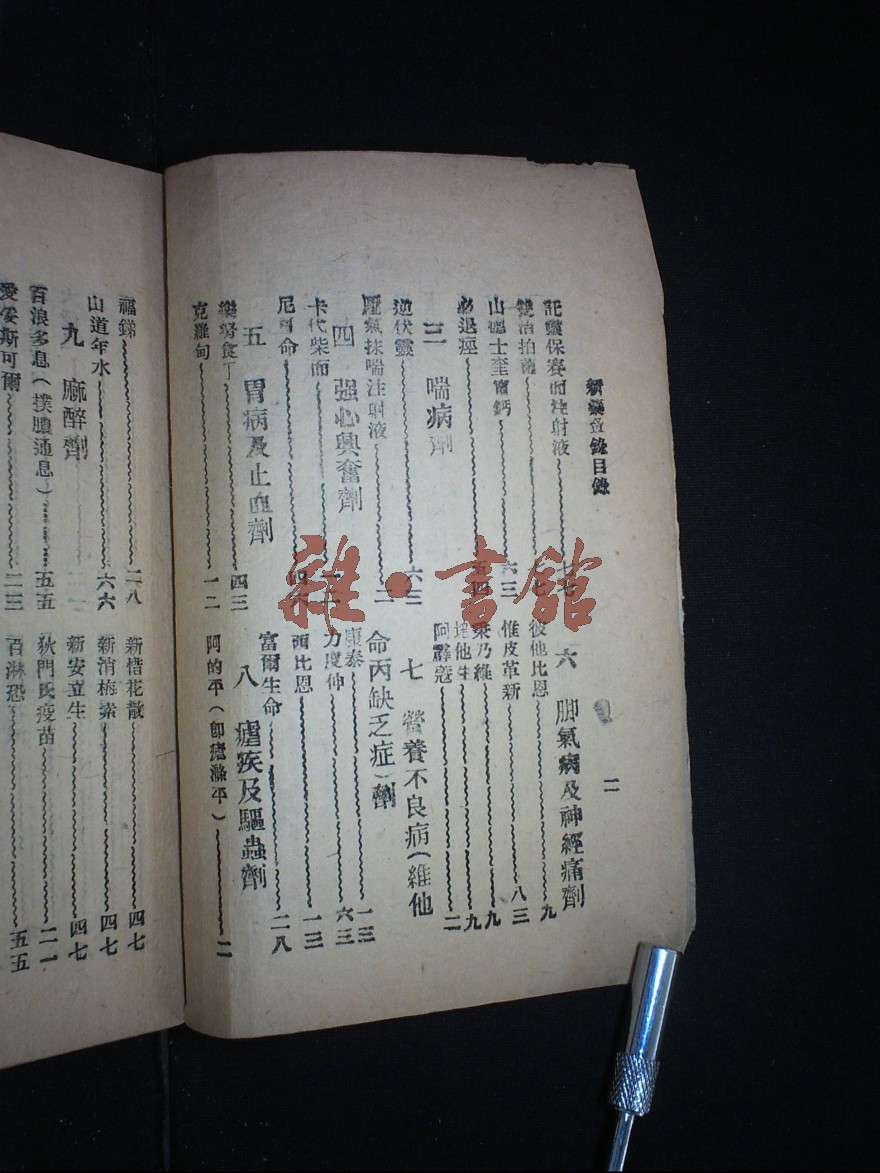 新藥彙錄目錄
二
託靈保賽而注射液 七七
山德士奎寧鈣 六三
必退痙 五四
三 喘病劑
逆伏靈 六三
壓氣抹喘注射液 二
四 强心興奮劑
卡代柴而
尼可命
五 胃病及止血劑
樂努食丁 四三
克羅甸 一二
六 脚氣病及神經痛劑
彼他比恩 九
惟皮革新 八三
乘乃維 九
培他生 九
阿霹寇 二
七 營養不良病(維他
命丙缺乏症)劑
康泰 一三
力度伸 六三
西比恩 一三
富爾生命 二八
八 瘧疾及驅蟲劑
阿的平(卽瘧滌平) 二
福銻 二八
山道年水 六六
九 麻醉劑
百浪多息(撲膿通息) 五五
愛妥斯可爾 二三
新惜花散 四七
新消梅素 四七
新安立生 四七
狄門氏疫苗 二一
百淋恐 五五
雜·書館